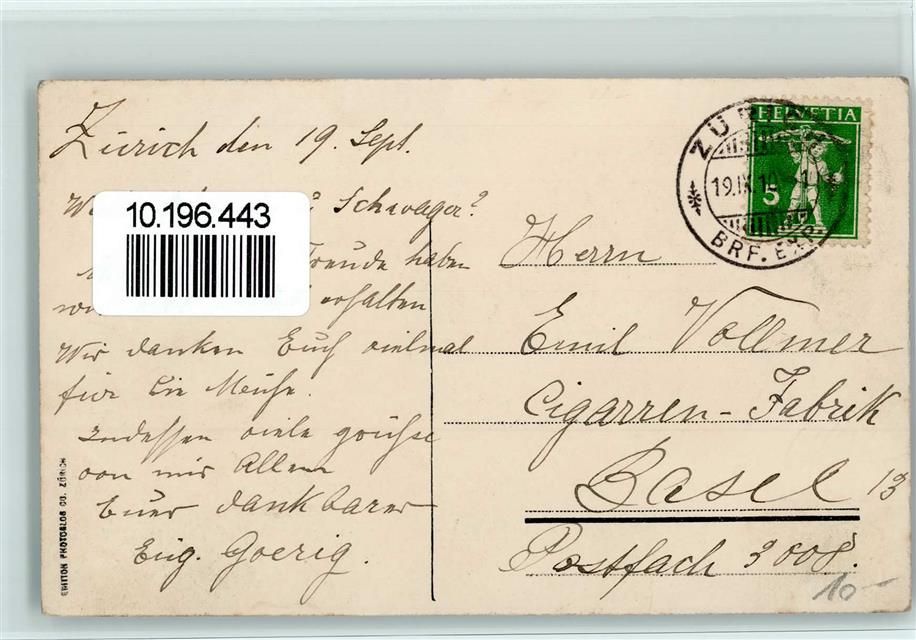 Zürich den 19. Sept.
Schwager?
10.196.443
Freude haben
erhalten
Wir danken Euch vielmal
für die Mühe.
Indessen viele Grüsse
von mir Allen
Euer dankbarer
Eug. Goerig.
HELVETIA
5
ZÜRICH
19.IX.10
BRF. EXP.
Herrn
Emil Vollmer
Cigarren-Fabrik
Basel 13
Postfach 3008.
10-
EDITION PHOTOGLOB CO. ZÜRICH